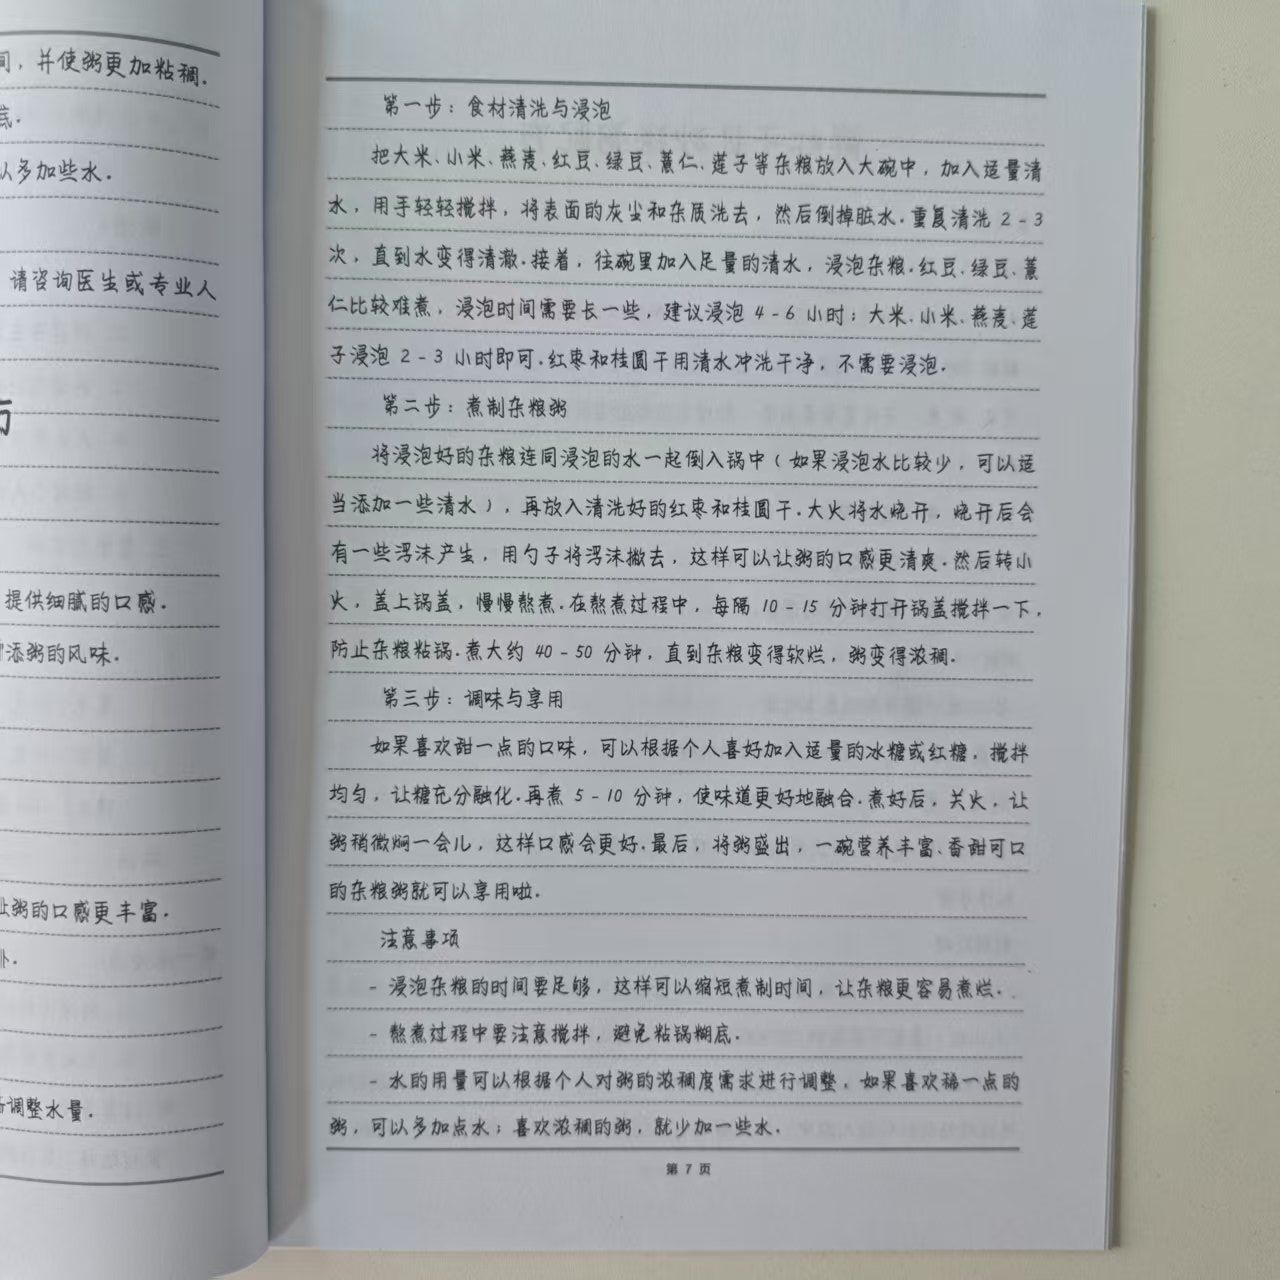 间，并使粥更加粘稠.
底.
以多加些水.
请咨询医生或专业人
方
提供细腻的口感.
添粥的风味.
让粥的口感更丰富.
外.
调整水量.
第一步：食材清洗与浸泡
把大米、小米、燕麦、红豆、绿豆、薏仁、莲子等杂粮放入大碗中，加入适量清
水，用手轻轻搅拌，将表面的灰尘和杂质洗去，然后倒掉脏水.重复清洗 2-3
次，直到水变得清澈.接着，往碗里加入足量的清水，浸泡杂粮.红豆、绿豆、薏
仁比较难煮，浸泡时间需要长一些，建议浸泡 4-6 小时；大米、小米、燕麦、莲
子浸泡 2-3 小时即可.红枣和桂圆干用清水冲洗干净，不需要浸泡.
第二步：煮制杂粮粥
将浸泡好的杂粮连同浸泡的水一起倒入锅中（如果浸泡水比较少，可以适
当添加一些清水），再放入清洗好的红枣和桂圆干.大火将水烧开，烧开后会
有一些浮沫产生，用勺子将浮沫撇去，这样可以让粥的口感更清爽.然后转小
火，盖上锅盖，慢慢熬煮.在熬煮过程中，每隔 10-15 分钟打开锅盖搅拌一下，
防止杂粮粘锅.煮大约 40-50 分钟，直到杂粮变得软烂，粥变得浓稠.
第三步：调味与享用
如果喜欢甜一点的口味，可以根据个人喜好加入适量的冰糖或红糖，搅拌
均匀，让糖充分融化.再煮 5-10 分钟，使味道更好地融合.煮好后，关火，让
粥稍微焖一会儿，这样口感会更好.最后，将粥盛出，一碗营养丰富、香甜可口
的杂粮粥就可以享用啦.
注意事项
- 浸泡杂粮的时间要足够，这样可以缩短煮制时间，让杂粮更容易煮烂.
- 熬煮过程中要注意搅拌，避免粘锅糊底.
- 水的用量可以根据个人对粥的浓稠度需求进行调整，如果喜欢稀一点的
粥，可以多加点水；喜欢浓稠的粥，就少加一些水.
第 7 页